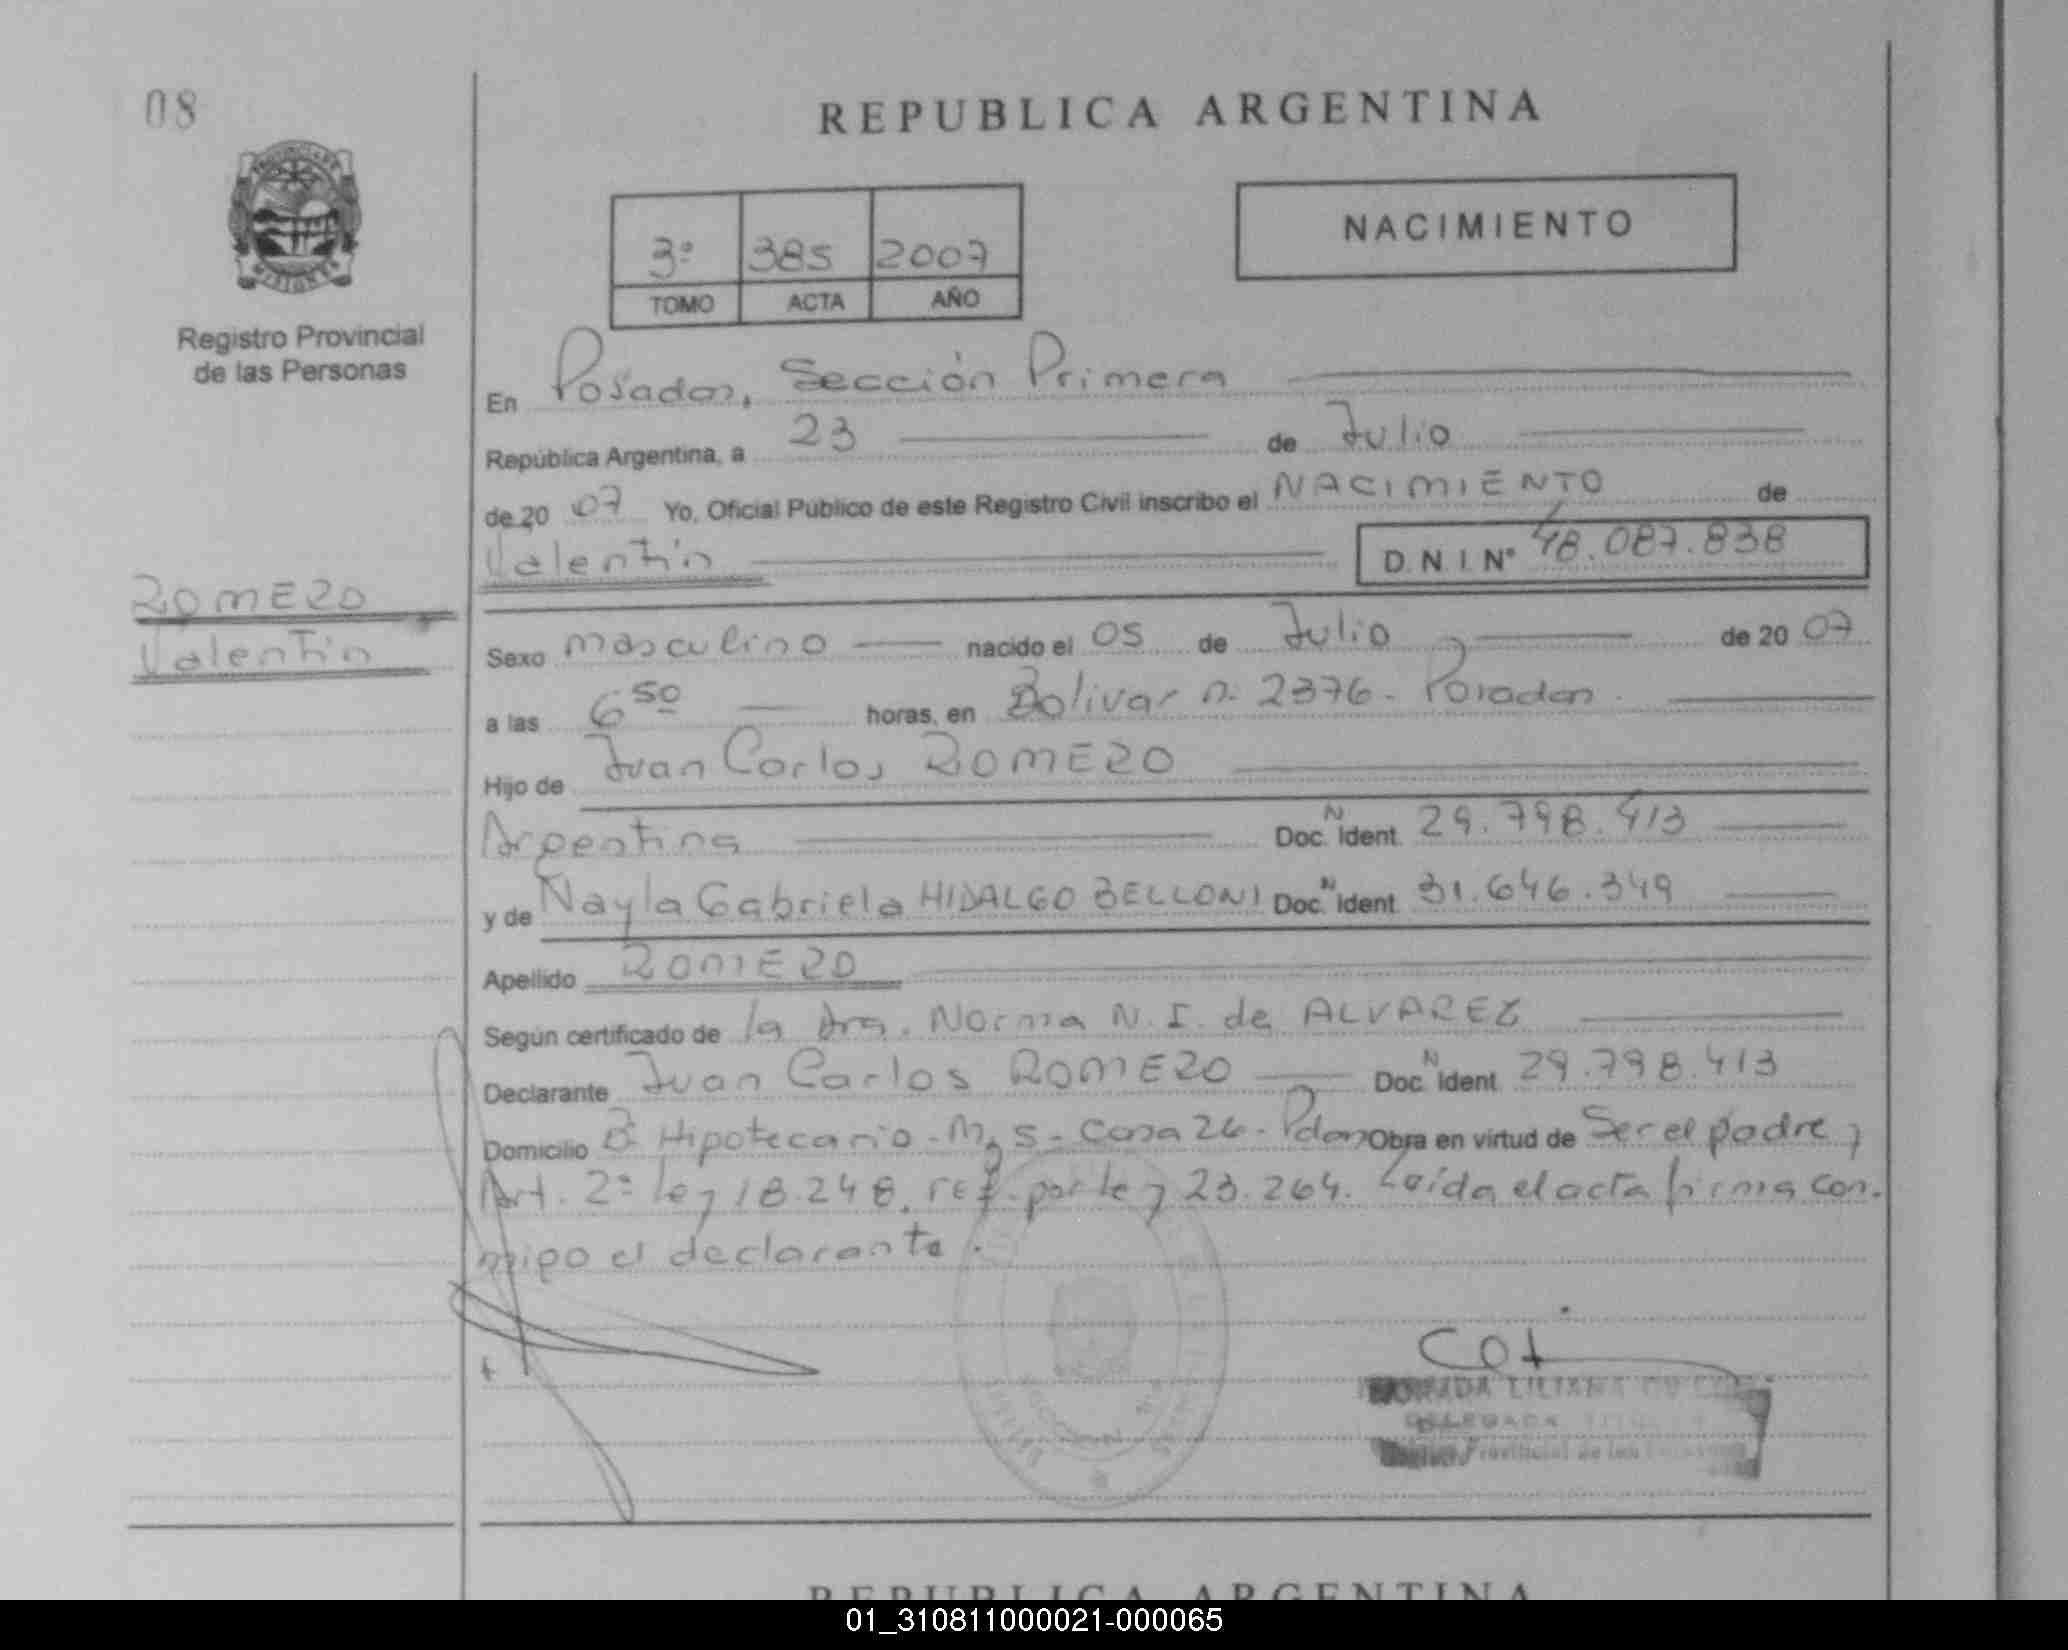 08
REPUBLICA ARGENTINA
NACIMIENTO
3º 385 2007
TOMO ACTA AÑO
Registro Provincial
de las Personas
En Posadas, Sección Primera
República Argentina, a 23 de Julio
de 20 07 Yo, Oficial Público de este Registro Civil inscribo el NACIMIENTO de
Valentín D.N.I. Nº 48.087.838
ROMERO
Valentín
Sexo masculino nacido el 05 de Julio de 20 07
a las 6 50 horas, en Bolivar n. 2376 - Posadas.
Hijo de Juan Carlos ROMERO
Argentina Doc. N Ident. 29.798.413
y de Nayla Gabriela HIDALGO BELLONI Doc. N Ident. 31.646.349
Apellido ROMERO
Según certificado de la Dra. Norma N. I. de ALVAREZ
Declarante Juan Carlos ROMERO Doc. N Ident. 29.798.413
Domicilio Bº Hipotecario - Mz 5 - Casa 26 - Pdas Obra en virtud de Ser el padre,
Art. 2º ley 18.248, ref. por ley 23.264. Leída el acta firma con-
migo el declarante.
LILIANA
DELEGADA
Provincial de las
REPUBLICA ARGENTINA
01_310811000021-000065